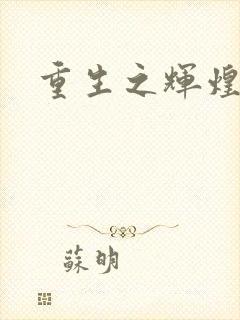 重生之輝煌
蘇明